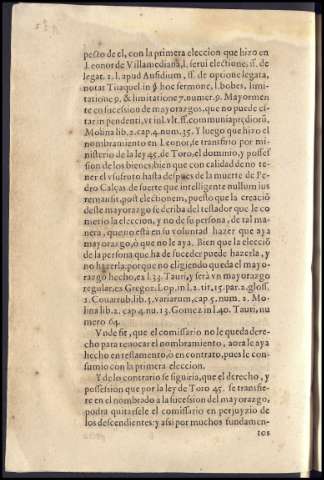 pecto de el, con la primera eleccion que hizo en
Leonor de Villamediana, l. serui electione, ff. de
legat. 1. l. apud Aufidium, ff. de optione legata,
notat Tiraquel. in § hoc sermone, l. bobes, limi-
tatione 9. & limitatione 7. numer. 9. Mayormen
te en sucession de mayorazgos, que no puede es-
tar in pendenti, vt in l. vlt. ff. communia prędiorũ,
Molina lib. 2. cap. 4. num. 35. Y luego que hizo el
nombramiento en Leonor, se transfirio por mi-
nisterio de la ley 45. de Toro, el dominio, y posses-
sion de los bienes, bien que con calidad de no te-
ner el vsufruto hasta despues de la muerte de Pe-
dro Calças de suerte que intelligente nullum ius
remansit, post electionem, puesto que la creació
deste mayorazgo se deriba del testador que le co
metio la eleccion, y no de su persona, de tal ma-
nera, que no està en su voluntad hazer que aya
mayorazgo, ò que no le aya. Bien que la elecció
de la persona que ha de suceder puede hazerla, y
no hazerla: porque no eligiendo queda el mayo-
razgo hecho, ex l. 33. Tauri, y serà vn mayorazgo
regular, ex Gregor. Lop. in l. 2. tit. 15. par. 2. gloss.
2. Couarrub. lib. 3. variarum, cap. 5. num. 2. Mo-
lina lib. 2. cap. 4. nu. 13. Gomez in l. 40. Tauri, nu
mero 64.
Vnde fit, que el comissario no le queda dere-
cho para reuocar el nombramiento, aora le aya
hecho en testamento, ò en contrato, pues le con-
sumio con la primera eleccion.
Y de lo contrario se siguiria, que el derecho, y
possession que por la ley de Toro 45. se transfie-
re en el nombrado a la sucession del mayorazgo,
podra quitarsele el comissario en perjuyzio de
los descendientes: y assi por muchos fundamen-
tos